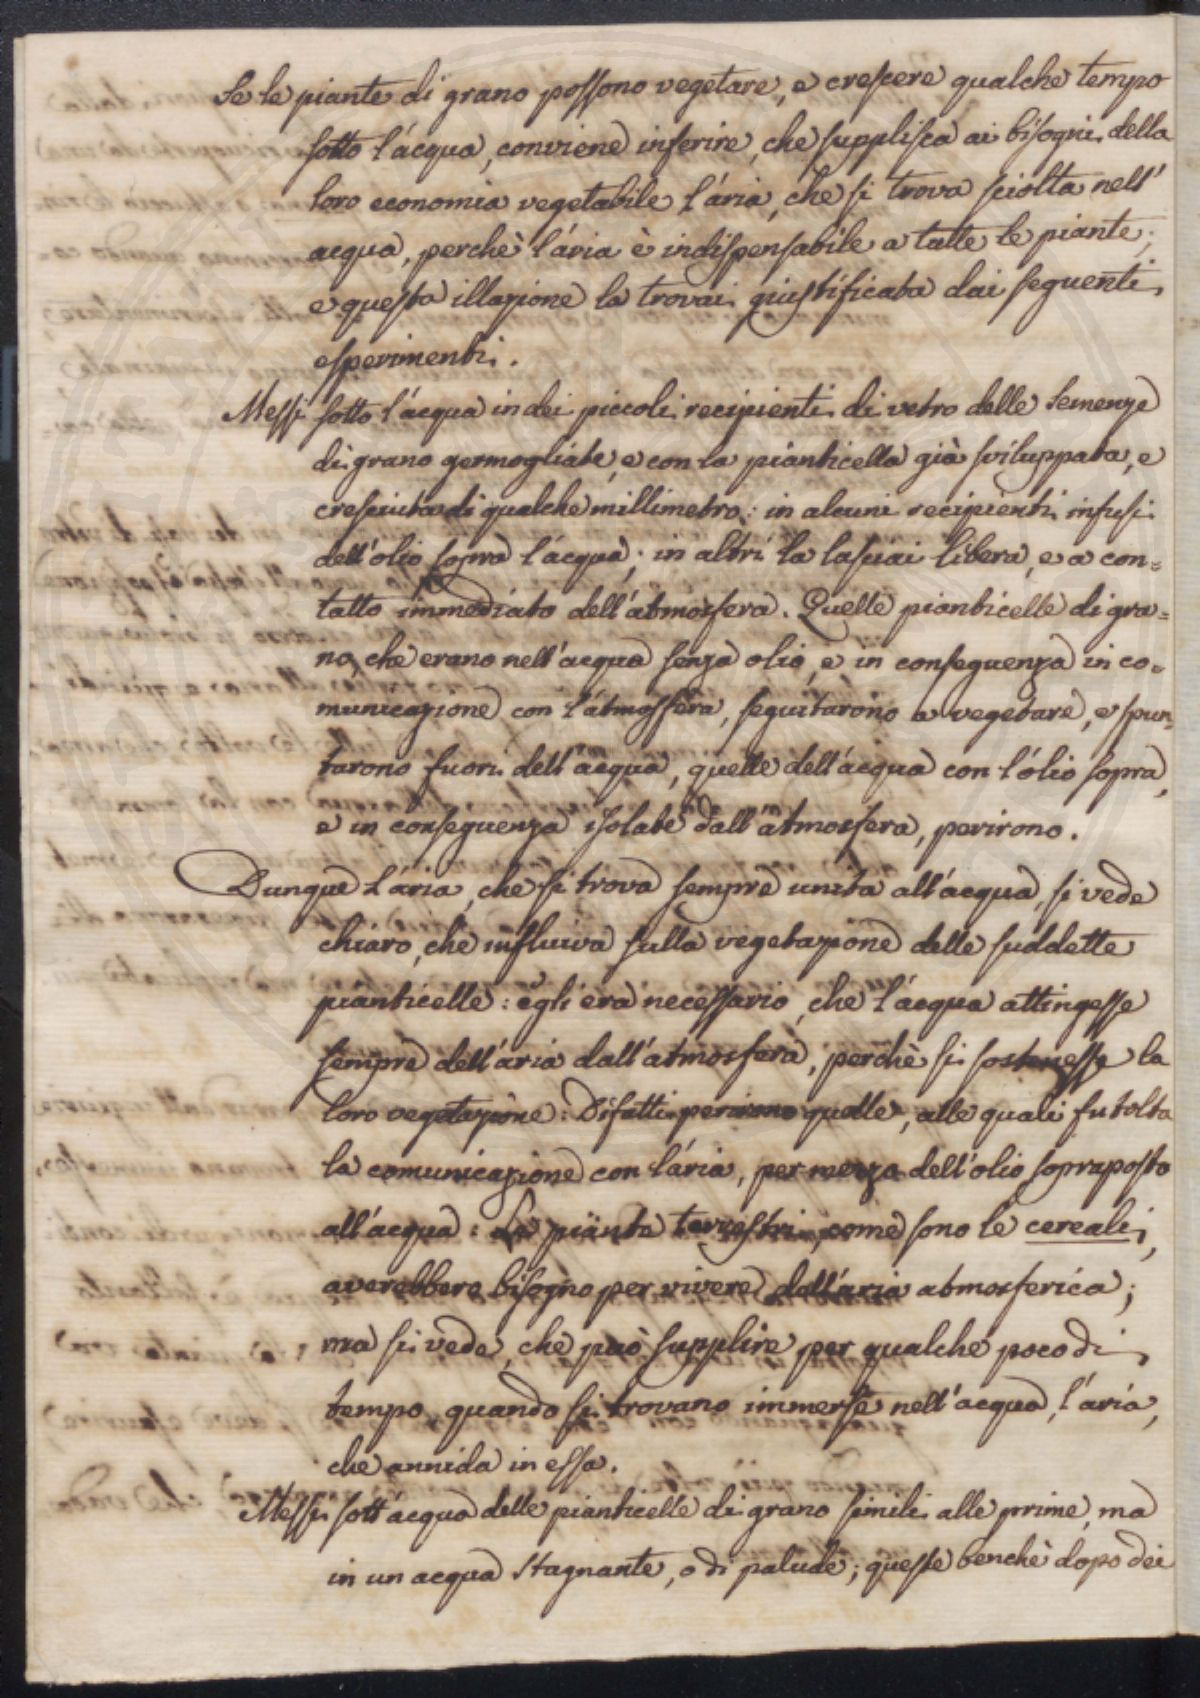 Se le piante di grano possono vegetare, e crescere qualche tempo
sotto l'acqua, conviene inferire, che supplisca ai bisogni della
loro economia vegetabile l'aria, che si trova sciolta nell'
acqua, perchè l'aria è indispensabile a tutte le piante;
e questa illazione la trovai giustificata dai seguenti
esperimenti.
Messi sotto l'acqua in dei piccoli recipienti di vetro delle semenze
di grano germogliate, e con la pianticella già sviluppata, e
cresciuta di qualche millimetro: in alcuni recipienti infusi
dell'olio sopra l'acqua; in altri la lasciai libera, e a con=
tatto immediato dell'atmosfera. Quelle pianticelle di gra=
no, che erano nell'acqua senza olio, e in conseguenza in co=
municazione con l'atmosfera, seguitarono a vegetare, e spun=
tarono fuori dell'acqua, quelle dell'acqua con l'olio sopra,
e in conseguenza isolate dall'atmosfera, perirono.
Dunque l'aria, che si trova sempre unita all'acqua, si vede
chiaro, che influiva sulla vegetazione delle suddette
pianticelle: egli era necessario, che l'acqua attingesse
sempre dell'aria dall'atmosfera, perchè si sostenesse la
loro vegetazione: Difatti perirono quelle, alle quali fu tolta
la comunicazione con l'aria, per mezzo dell'olio soprapposto
all'acqua: Le piante terrestri, come sono le cereali,
averebbero bisogno per vivere dell'aria atmosferica;
ma si vede, che può supplire per qualche poco di
tempo, quando si trovano immerse nell'acqua, l'aria,
che annida in essa.
Messi sott'acqua delle pianticelle di grano simili alle prime, ma
in un acqua stagnante, o di palude; queste benchè dopo dei